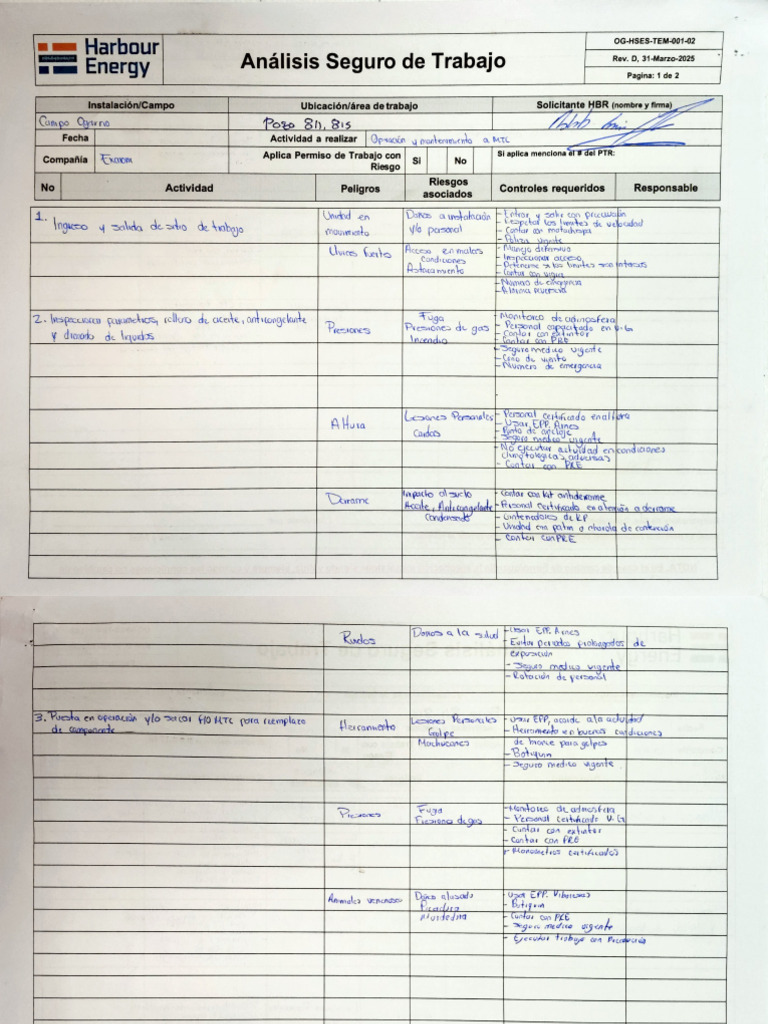 Harbour
Energy
Análisis Seguro de Trabajo
OG-HSES-TEM-001-02
Rev. D, 31-Marzo-2025
Pagina: 1 de 2
Instalación/Campo
Ubicación/área de trabajo
Solicitante HBR (nombre y firma)
Campo
Pozo 811, 815
Fecha
Actividad a realizar
Operación y mantenimiento a MTC
Compañía
Aplica Permiso de Trabajo con Riesgo
Si
No
Si aplica menciona el # del PTR:
No
Actividad
Peligros
Riesgos asociados
Controles requeridos
Responsable
1. Ingreso y salida de sitio de trabajo
Unidad en movimiento
Daños a instalación y/o personal
- Entrar y salir con precaución
- Respetar los limites de velocidad
- Contar con matachispa
- Poliza vigente
Lluvias fuertes
Acceso en malas condiciones
- Manejo defensivo
- Inspeccionar acceso
- Contar con
- Numero de emergencia
2. Inspeccionar parametros, relleno de aceite, anticongelante y drenado de liquidos
Presiones
Fuga
Presiones de gas
Incendio
- Monitoreo de atmosfera
- Personal capacitado en
- Contar con extintor
- Contar con PRE
- Seguro medico vigente
- Cono de viento
- Numero de emergencia
Altura
Lesiones Personales
Caidas
- Personal certificado en altura
- Usar EPP, Arnes
- Punto de anclaje
- Seguro medico vigente
- No ejecutar actividad en condiciones climatologicas adversas
- Contar con PRE
Derrame
Impacto al suelo
Aceite, Anticongelante
Condensado
- Contar con kit antiderrame
- Personal certificado en atención a derrame
- Contenedores de RP
- Unidad con
- Contar con PRE
Ruidos
Daños a la salud
- Usar EPP, Arnes
- Evitar periodos prolongados de exposición
- Seguro medico vigente
- Rotación de personal
3. Puesta en operación y/o sacar F/O MTC para reemplazo de componente
Herramienta
Lesiones Personales
Golpe
Machucones
- Usar EPP, acorde a la actividad
- Herramienta en buenas condiciones
de bronce para golpes
- Botiquin
- Seguro medico vigente
Presiones
Fuga
Presiones de gas
- Monitoreo de atmosfera
- Personal certificado
- Contar con extintor
- Contar con PRE
- Monodetectores certificados
Animales venenosos
Daños a la salud
Picadura
Mordedura
- Usar EPP.
- Botiquin
- Contar con PRE
- Seguro medico vigente
- Ejecutar trabajo con Precaución